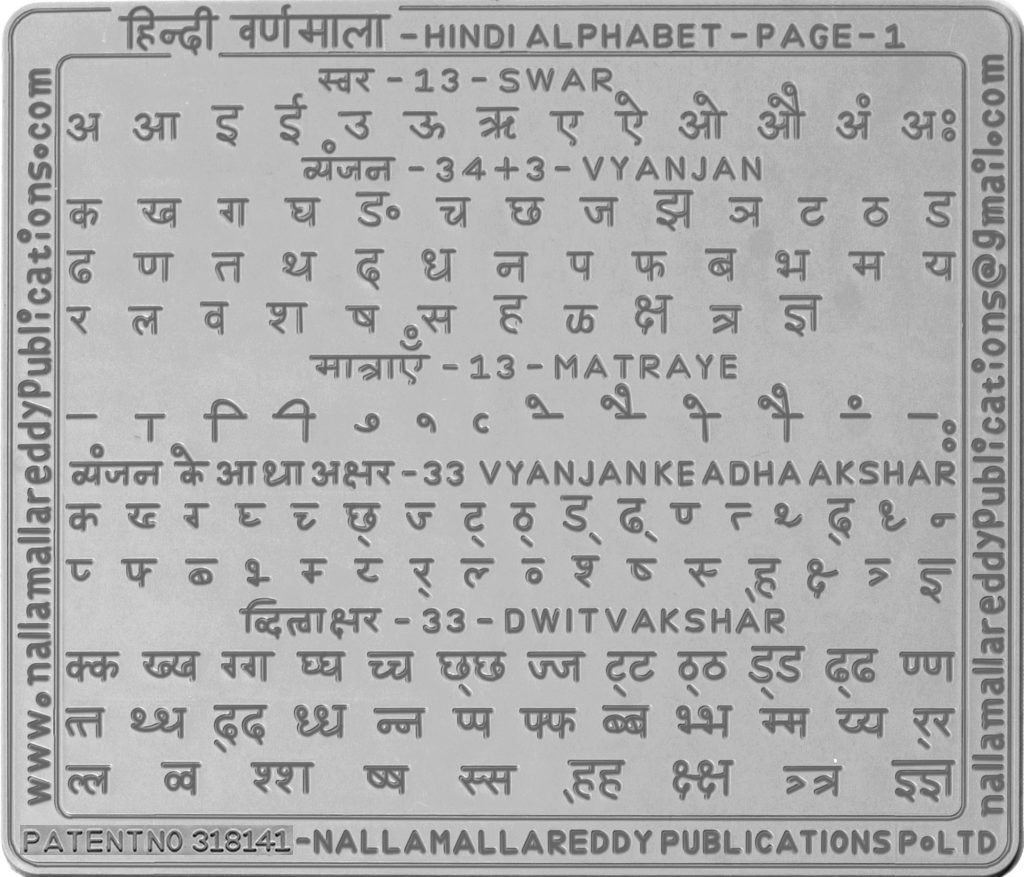 हिन्दी वर्णमाला - HINDI ALPHABET - PAGE - 1
स्वर - 13 - SWAR
अ आ इ ई उ ऊ ऋ ए ऐ ओ औ अं अः
व्यंजन - 34+3 - VYANJAN
क ख ग घ ङ च छ ज झ ञ ट ठ ड
ढ ण त थ द ध न प फ ब भ म य
र ल व श ष स ह ळ क्ष त्र ज्ञ
मात्राएँ - 13 - MATRAYE
व्यंजन के आधा अक्षर - 33 VYANJAN KE ADHA AKSHAR
क्‍ ख्‍ ग्‍ घ्‍ च्‍ छ् ज्‍ ट् ठ् ड् ढ् ण्‍ त्‍ थ्‍ द् ध्‍ न्‍
प्‍ फ्‍ ब्‍ भ्‍ म्‍ य्‍ र् ल्‍ व्‍ श्‍ ष्‍ स्‍ ह् क्ष्‍ त्र्‍ ज्ञ्‍
द्वित्वाक्षर - 33 - DWITVAKSHAR
क्क ख्ख ग्ग घ्घ च्च छ्छ ज्ज ट्ट ठ्ठ ड्ड ढ्ढ ण्ण
त्त थ्थ द्द ध्ध न्न प्प फ्फ ब्ब भ्भ म्म य्य र्र
ल्ल व्व श्श ष्ष स्स ह्ह क्ष्क्ष त्र्त्र ज्ञ्ज्ञ
PATENT NO 318141 - NALLAMALLAREDDY PUBLICATIONS P.LTD
www.nallamallareddyPublications.com
nallamallareddyPublications@gmail.com